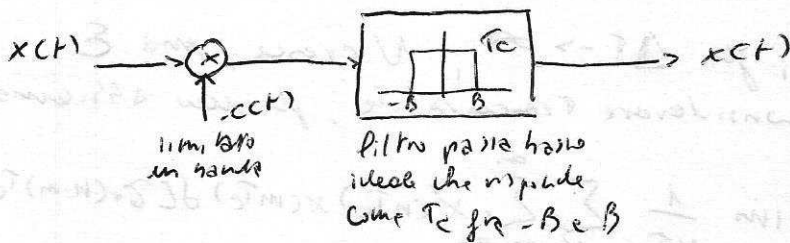 x(t) x c(t) Tc x(t)
-B B
limitato
in banda
filtro passa basso
ideale che risponde
come Tc fra -B e B